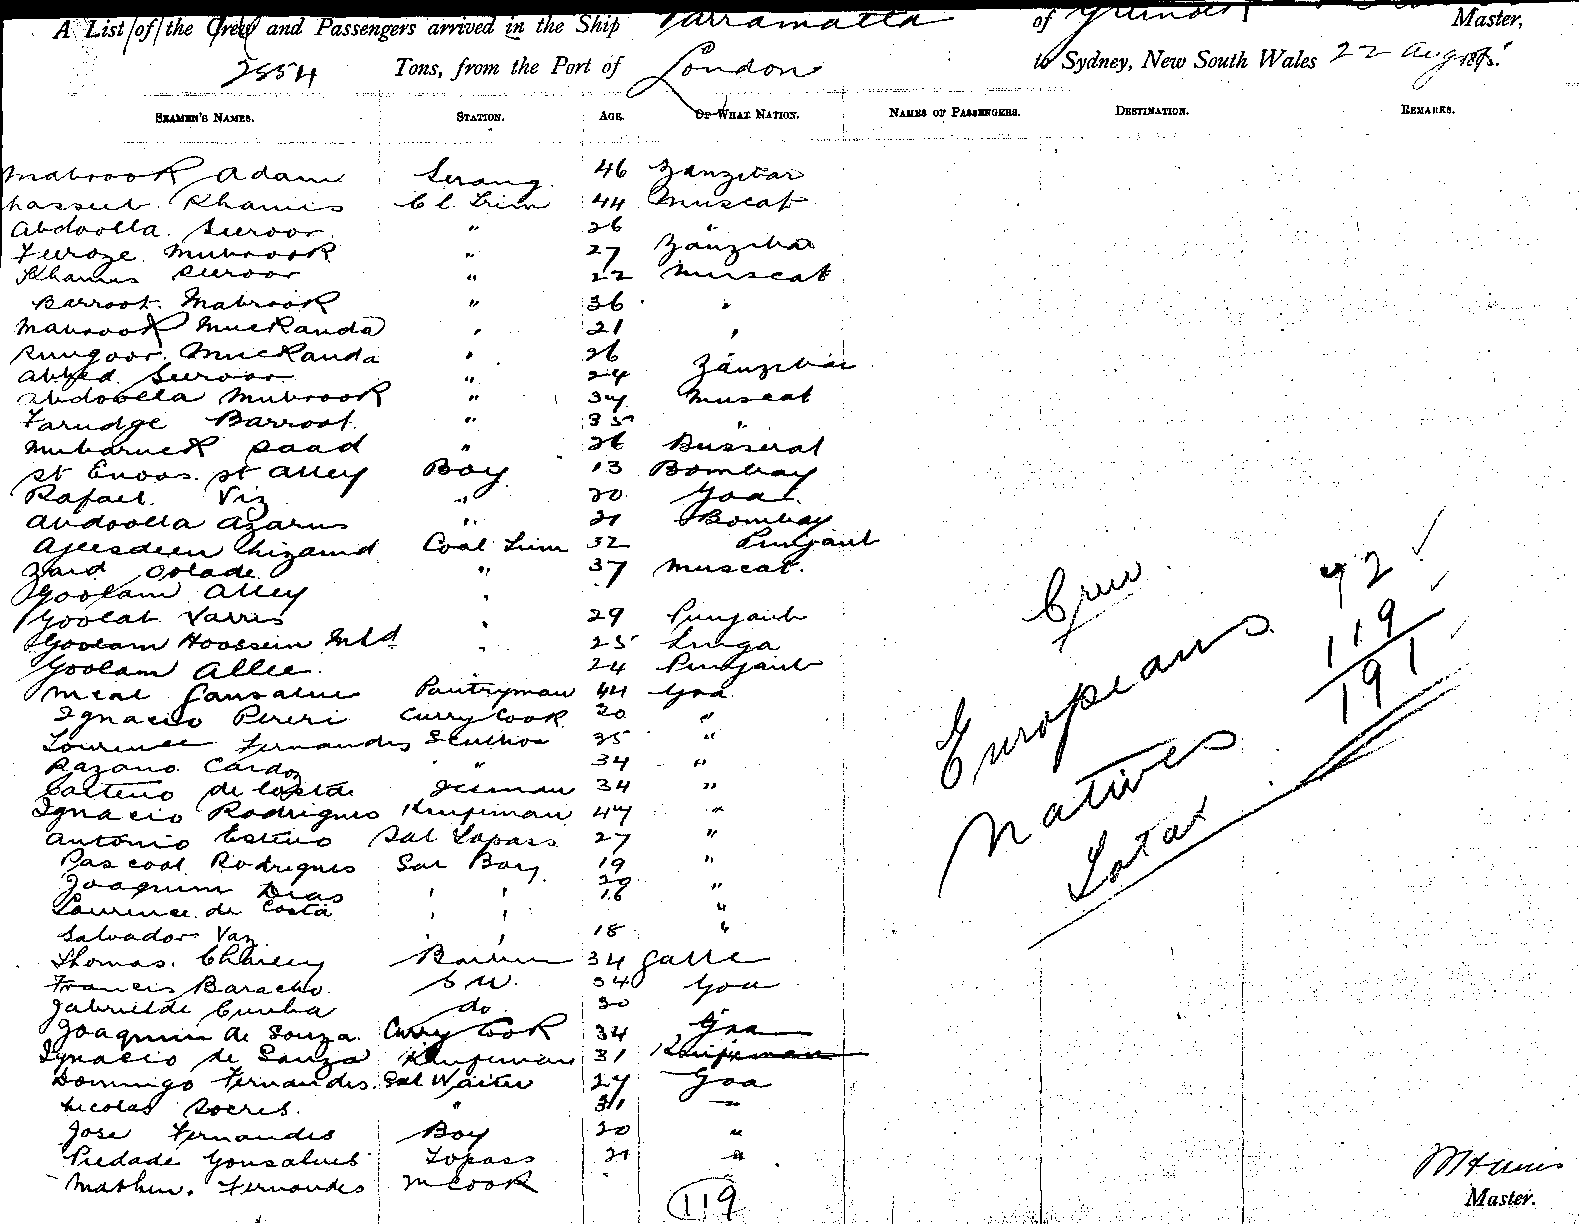 A List of the Crew and Passengers arrived in the Ship Parramatta of Master,
2854 Tons, from the Port of London to Sydney, New South Wales 22 Aug 188
SEAMEN'S NAMES. STATION. AGE. OF WHAT NATION. NAMES OF PASSENGERS. DESTINATION. REMARKS.
Mabrook Adam Serang 46 Zanzibar
Khamis Cl Trim 44 Muscat
Abdoolla Suroor " 26 "
Feroze Mubrook " 27 Zanzibar
Khamis Suroor " 22 Muscat
Barroot Mabrook " 36 "
Mabrook Muckanda " 21 "
Rungoor Muckanda " 26
Abbed Suroor " 24 Zanzibar
Abdoolla Mubrook " 34 Muscat
Farudge Barroot " 35 "
Mubaruck Saad " 26 Busserat
St Enoos St Alley Boy 13 Bombay
Rafael Viz " 20 Goa
Abdoolla Azarus " 21 Bombay
Ajeesdeen Coal Trim 32 Punjaub
Zaid " 37 Muscat
Goolam Alley "
Goolab Varris " 29 Punjaub
Goolam Hoossein Mhd " 25 Linga
Goolam Allee 24 Punjaub
Gonsalves Pantryman 44 Goa
Ignacio Pereri Curry Cook 20 "
Lourence Fernandes Scullion 35 "
Razano Cardoz " 34 "
Caiteno de Costa 34 "
Ignacio Rodrigues Knifeman 47 "
Antonio Esteno Sal Topass 27 "
Pascoal Rodrigues Sal Boy 19 "
Joaquim Dias " " 20 "
Laurence de Costa " " 16 "
Salvador Vaz " " 18 "
Thomas Charley Barber 34 Galle
Francis Baracho S W. 34 Goa
Gabriel de Cunha do 30
Joaquim de Souza Curry Cook 34 Goa
Ignacio de Souza Knifeman 31 Knifeman
Domingo Fernandes Sal Waiter 27 Goa
Nicolas Soeres " 31 "
Jose Fernandes Boy 20 "
Piedade Gonsalves Topass 21 "
Mathew Fernandes M Cook
119
Crew
Europeans 72
Natives 119
Total 191
Master.